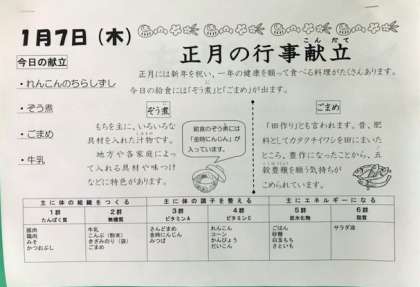 1月7日(木)
こんだて
正月の行事献立
今日の献立
・れんこんのちらしずし
・ぞう煮
・ごまめ
・牛乳
正月には新年を祝い、一年の健康を願って食べる料理がたくさんあります。
今日の給食には「ぞう煮」と「ごまめ」が出ます。
ぞう煮
もちを主に、いろいろな
具材を入れた汁物です。
地方や各家庭によっ
て入れる具材や味つけ
などに特色があります。
給食のぞう煮には
「金時にんじん」が
入っています。
ごまめ
「田作り」とも言われます。昔、肥
料としてカタクチイワシを田にまいた
ところ、豊作になったことから、五
穀豊穣を願う気持ちが
こめられています。
主に体の組織をつくる 主に体の調子を整える 主にエネルギーになる
1群 2群 3群 4群 5群 6群
たんぱく質 無機質 ビタミンA ビタミンC 炭水化物 脂質
豚肉 牛乳 さんどまめ れんこん ごはん サラダ油
鶏肉 こんぶ(粉末) 金時にんじん コーン 砂糖
みそ きざみのり(袋) みつば かんぴょう 白玉もち
かつおぶし ごまめ だいこん さといも